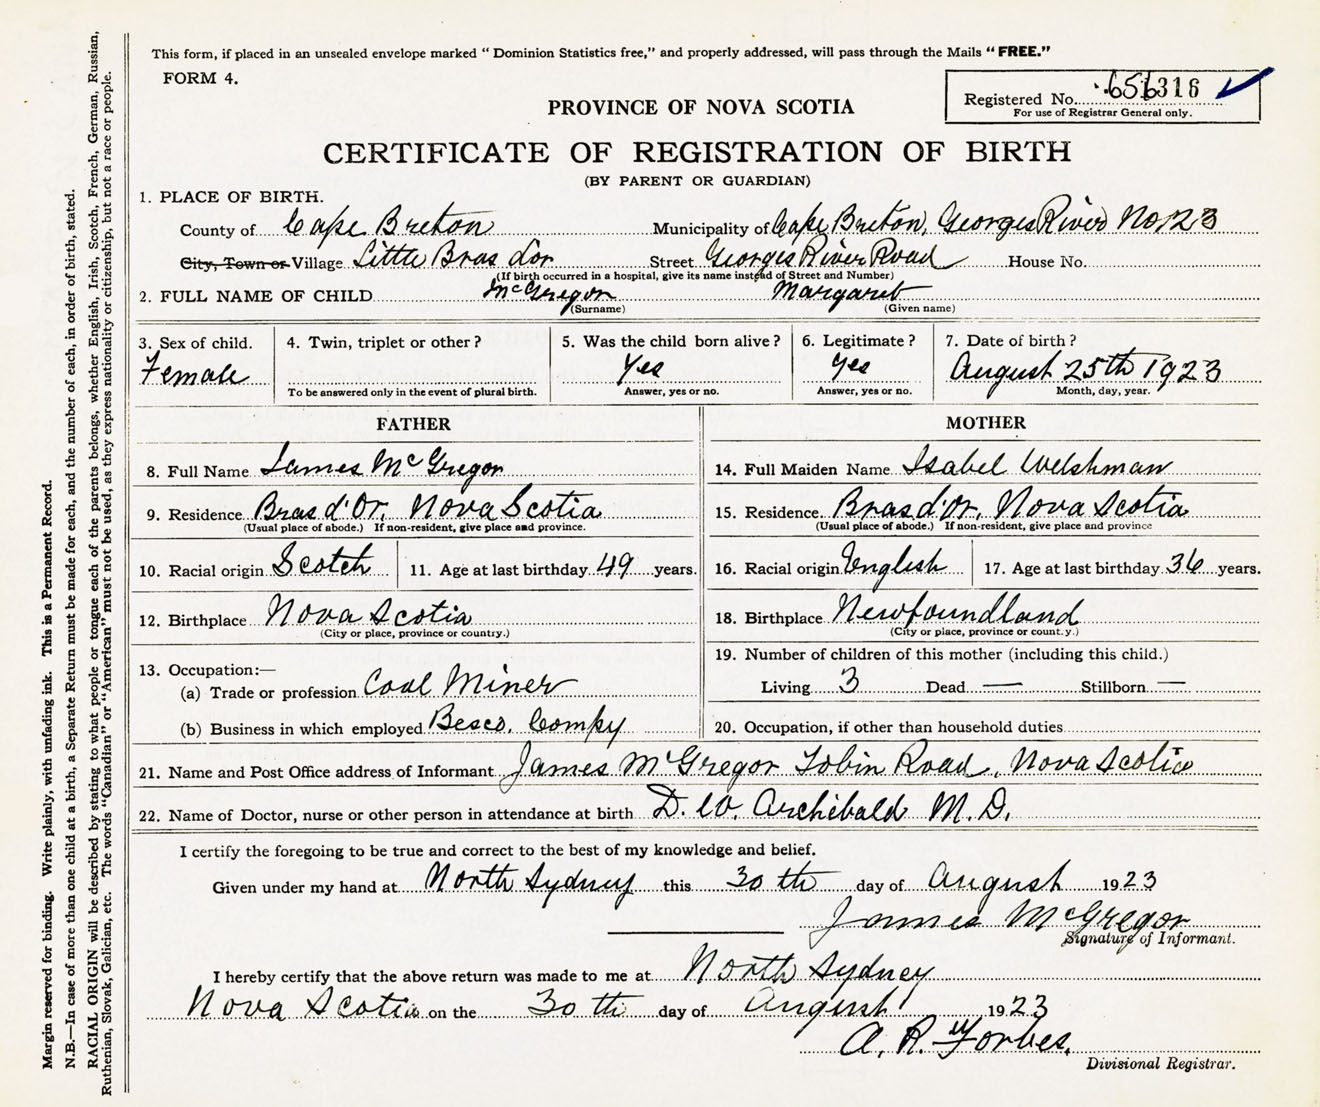 This form, if placed in an unsealed envelope marked “ Dominion Statistics free,” and properly addressed, will pass through the Mails “ FREE.”
FORM 4.
Registered No. 656316
For use of Registrar General only.
PROVINCE OF NOVA SCOTIA
CERTIFICATE OF REGISTRATION OF BIRTH
(BY PARENT OR GUARDIAN)
1. PLACE OF BIRTH.
County of Cape Breton Municipality of Cape Breton, Georges River No 123
City, Town or Village Little Bras d'or Street Georges River Road House No.
(If birth occurred in a hospital, give its name instead of Street and Number)
2. FULL NAME OF CHILD McGregor Margaret
(Surname) (Given name)
3. Sex of child. 4. Twin, triplet or other ? 5. Was the child born alive ? 6. Legitimate ? 7. Date of birth ?
Female Yes Yes August 25th 1923
To be answered only in the event of plural birth. Answer, yes or no. Answer, yes or no. Month, day, year.
FATHER MOTHER
8. Full Name James McGregor 14. Full Maiden Name Isabel Welshman
9. Residence Bras d'Or, Nova Scotia 15. Residence. Bras d'Or, Nova Scotia
(Usual place of abode.) If non-resident, give place and province. (Usual place of abode.) If non-resident, give place and province
10. Racial origin Scotch 11. Age at last birthday 49 years. 16. Racial origin English 17. Age at last birthday 36 years.
12. Birthplace Nova Scotia 18. Birthplace Newfoundland
(City or place, province or country.) (City or place, province or count.y.)
13. Occupation:— 19. Number of children of this mother (including this child.)
(a) Trade or profession Coal Miner Living 3 Dead — Stillborn —
(b) Business in which employed Besco. Compy 20. Occupation, if other than household duties
21. Name and Post Office address of Informant James McGregor Tobin Road, Nova Scotia
22. Name of Doctor, nurse or other person in attendance at birth D. W. Archibald M.D.
I certify the foregoing to be true and correct to the best of my knowledge and belief.
Given under my hand at North Sydney this 30 th day of August 1923
James McGregor
Signature of Informant.
I hereby certify that the above return was made to me at North Sydney
Nova Scotia on the 30 th day of August 1923
A. R. Forbes.
Divisional Registrar.
Margin reserved for binding. Write plainly, with unfading ink. This is a Permanent Record.
N.B.—In case of more than one child at a birth, a Separate Return must be made for each, and the number of each, in order of birth, stated.
RACIAL ORIGIN will be described by stating to what people or tongue each of the parents belongs, whether English, Irish, Scotch, French, German, Russian,
Ruthenian, Slovak, Galician, etc. The words “Canadian” or “American” must not be used, as they express nationality or citizenship, but not a race or people.